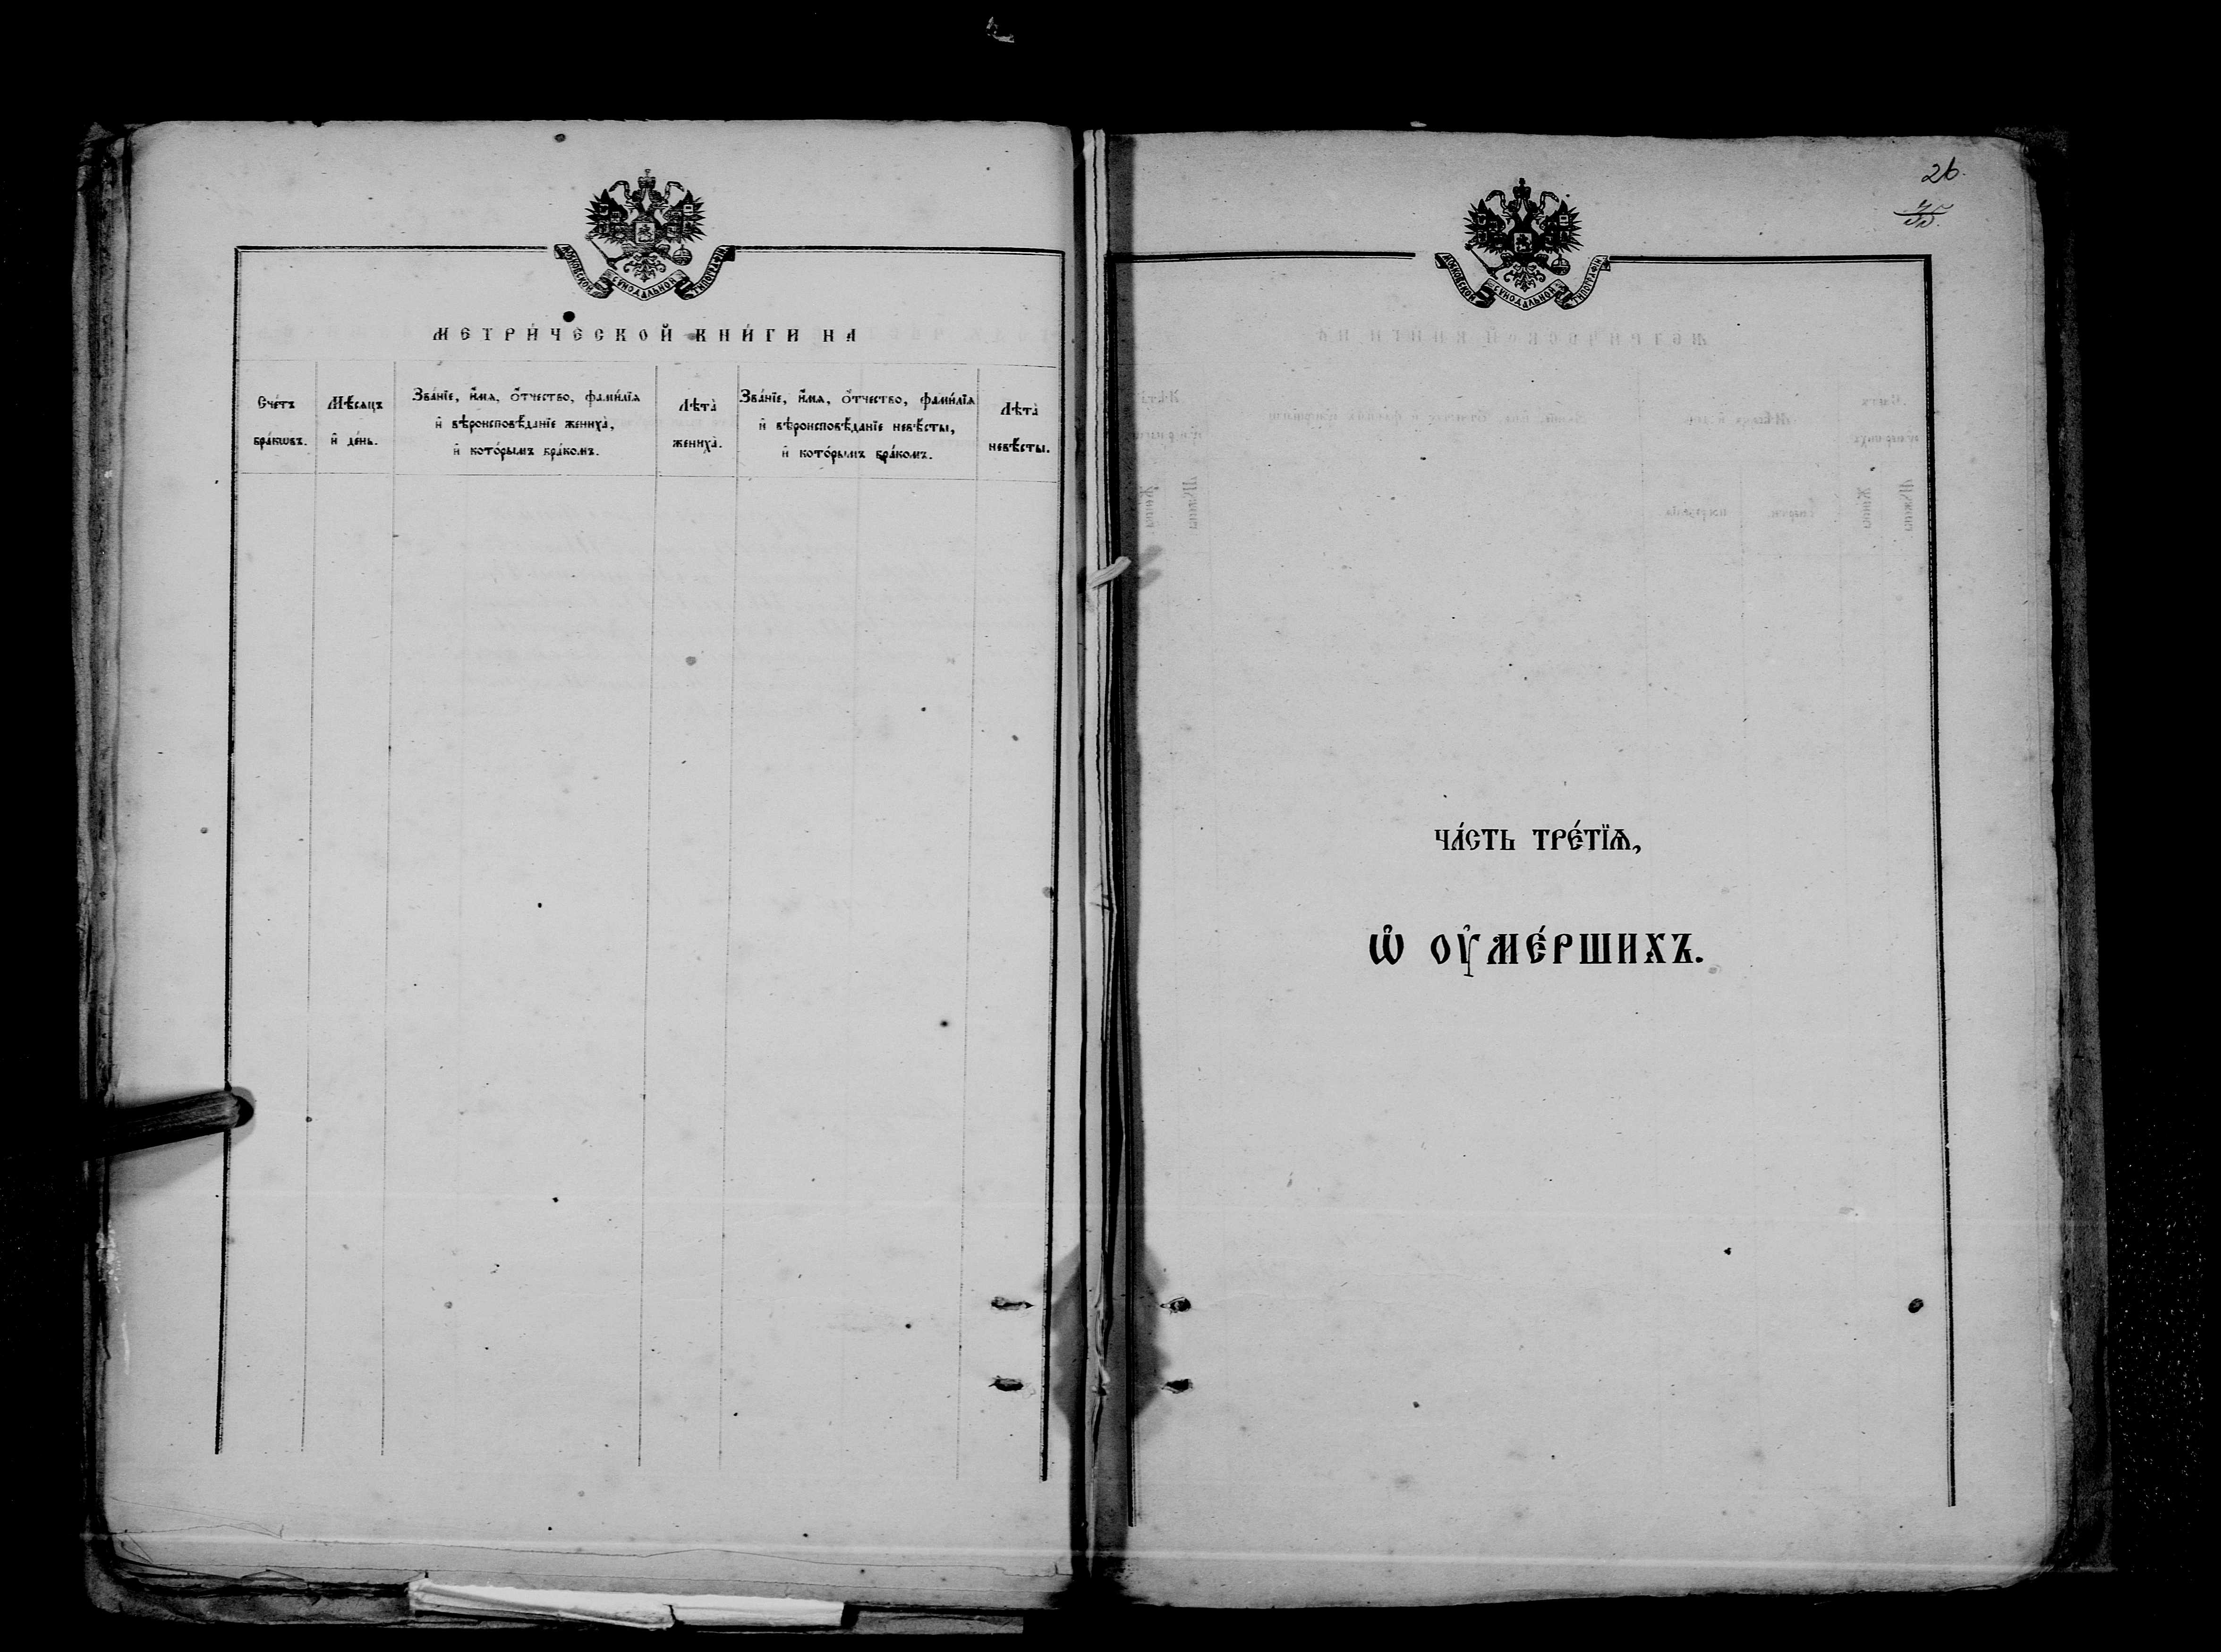 МОСКОВСКОЙ СѴНОДАЛЬНОЙ ТИПОГРАФІИ
МЕТРИ́ЧЕСКОЙ КНИ́ГИ НА
Сче́тъ
бра́кѡвъ.
Мѣ́сяцъ
и҆ де́нь.
Зва́нїе, и҆́мя, о҆́тчество, фами́лїя
и҆ вѣроисповѣ́данїе жениха̀,
и҆ кото́рымъ бра́комъ.
Лѣта̀
жениха̀.
Зва́нїе, и҆́мя, о҆́тчество, фами́лїя
и҆ вѣроисповѣ́данїе невѣ́сты,
и҆ кото́рымъ бра́комъ.
Лѣта̀
невѣ́сты.
26.
МОСКОВСКОЙ СѴНОДАЛЬНОЙ ТИПОГРАФІИ
ЧА́СТЬ ТРЕ́ТЇѦ,
Ѡ҆ ОУ҆МЕ́РШИХЪ.